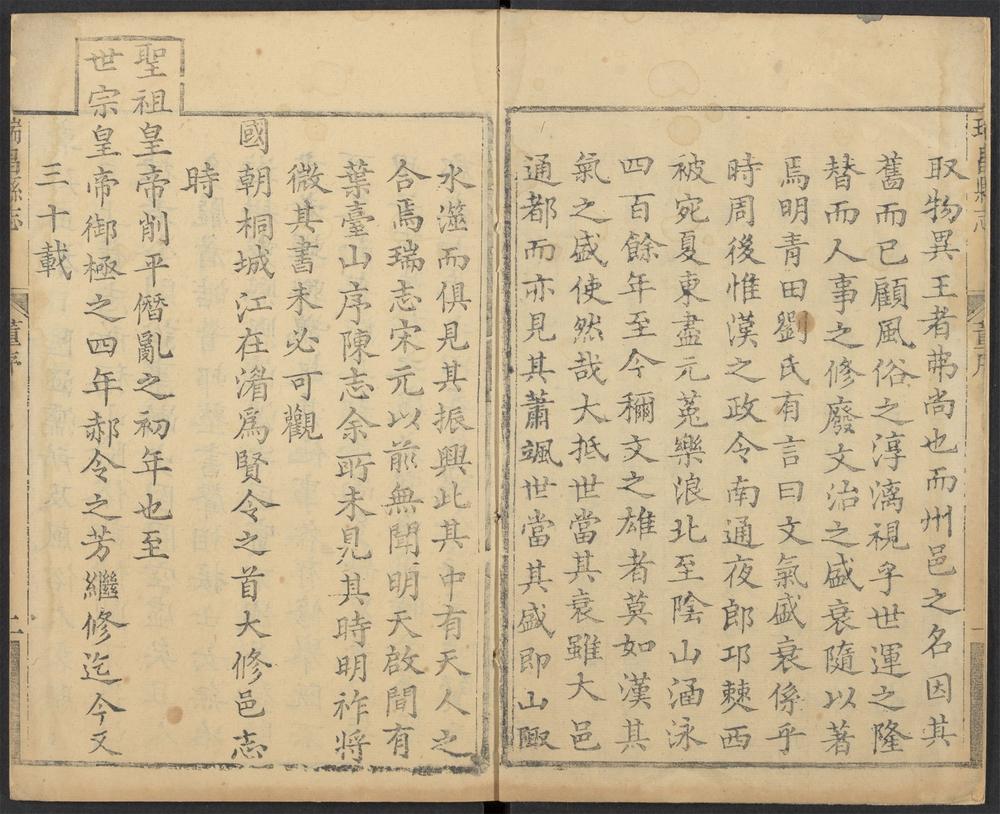 取物異王者弗尚也而州邑之名因其
舊而已顧風俗之淳漓視乎世運之隆
替而人事之修廢文治之盛衰隨以著
焉明青田劉氏有言曰文氣盛衰係乎
時周後惟漢之政令南通夜郎邛僰西
被宛夏東盡元菟樂浪北至陰山涵泳
四百餘年至今稱文之雄者莫如漢其
氣之盛使然哉大抵世當其衰雖大邑
通都而亦見其蕭颯世當其盛即山陬
水澨而俱見其振興此其中有天人之
合焉瑞志宋元以前無聞明天啟間有
葉臺山序陳志余所未見其時明祚將
微其書未必可觀
國朝桐城江在湄為賢令之首大修邑志
時
聖祖皇帝削平僭亂之初年也至
世宗皇帝御極之四年郝令之芳繼修迄今又
三十載
瑞昌縣志
董序
二